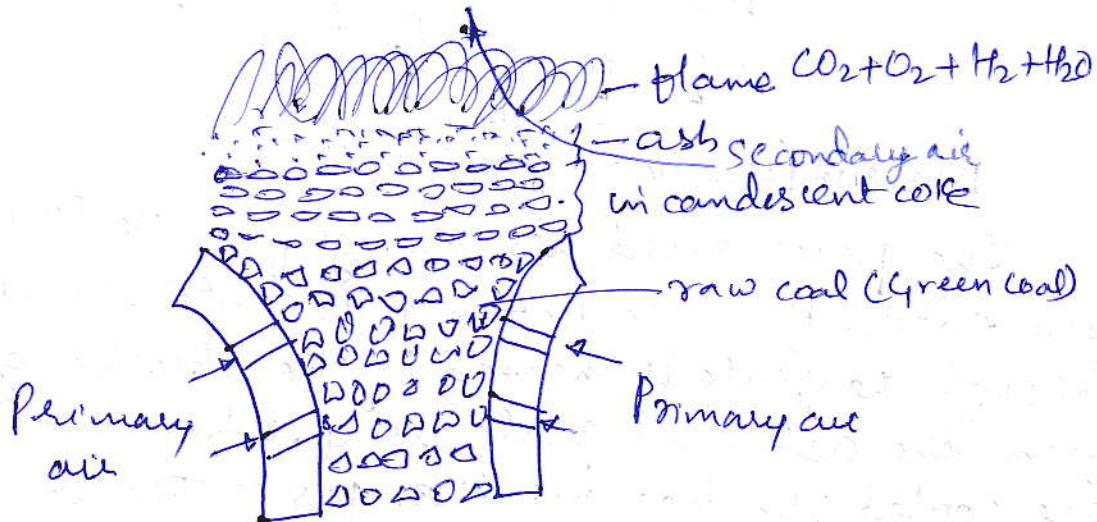 flame CO2+O2+H2+H2O
ash
secondary air
incandescent coke
raw coal (Green Coal)
Primary
air
Primary air